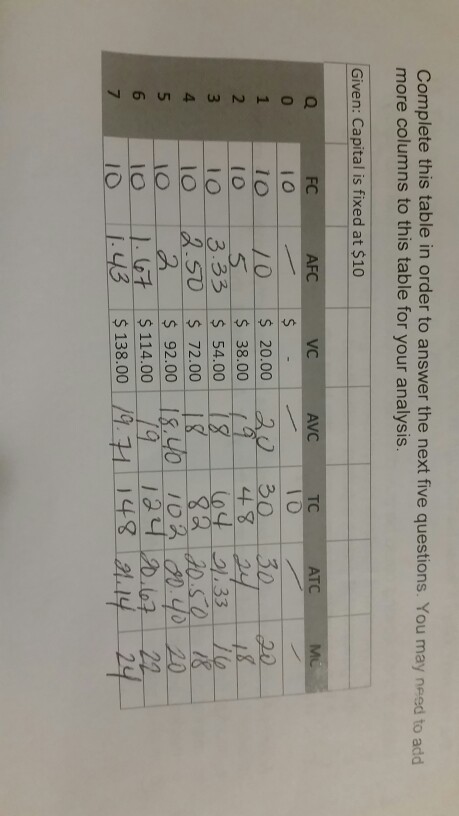 Complete this table in order to answer the next five questions. You may need to add
more columns to this table for your analysis.
Given: Capital is fixed at $10
Q FC AFC VC AVC TC ATC MC
0 10 — $ - — 10 — —
1 10 10 $ 20.00 20 30 30 20
2 10 5 $ 38.00 19 48 24 18
3 10 3.33 $ 54.00 18 64 21.33 16
4 10 2.50 $ 72.00 18 82 20.50 18
5 10 2 $ 92.00 18.40 102 20.40 20
6 10 1.67 $ 114.00 19 124 20.67 22
7 10 1.43 $ 138.00 19.71 148 21.14 24